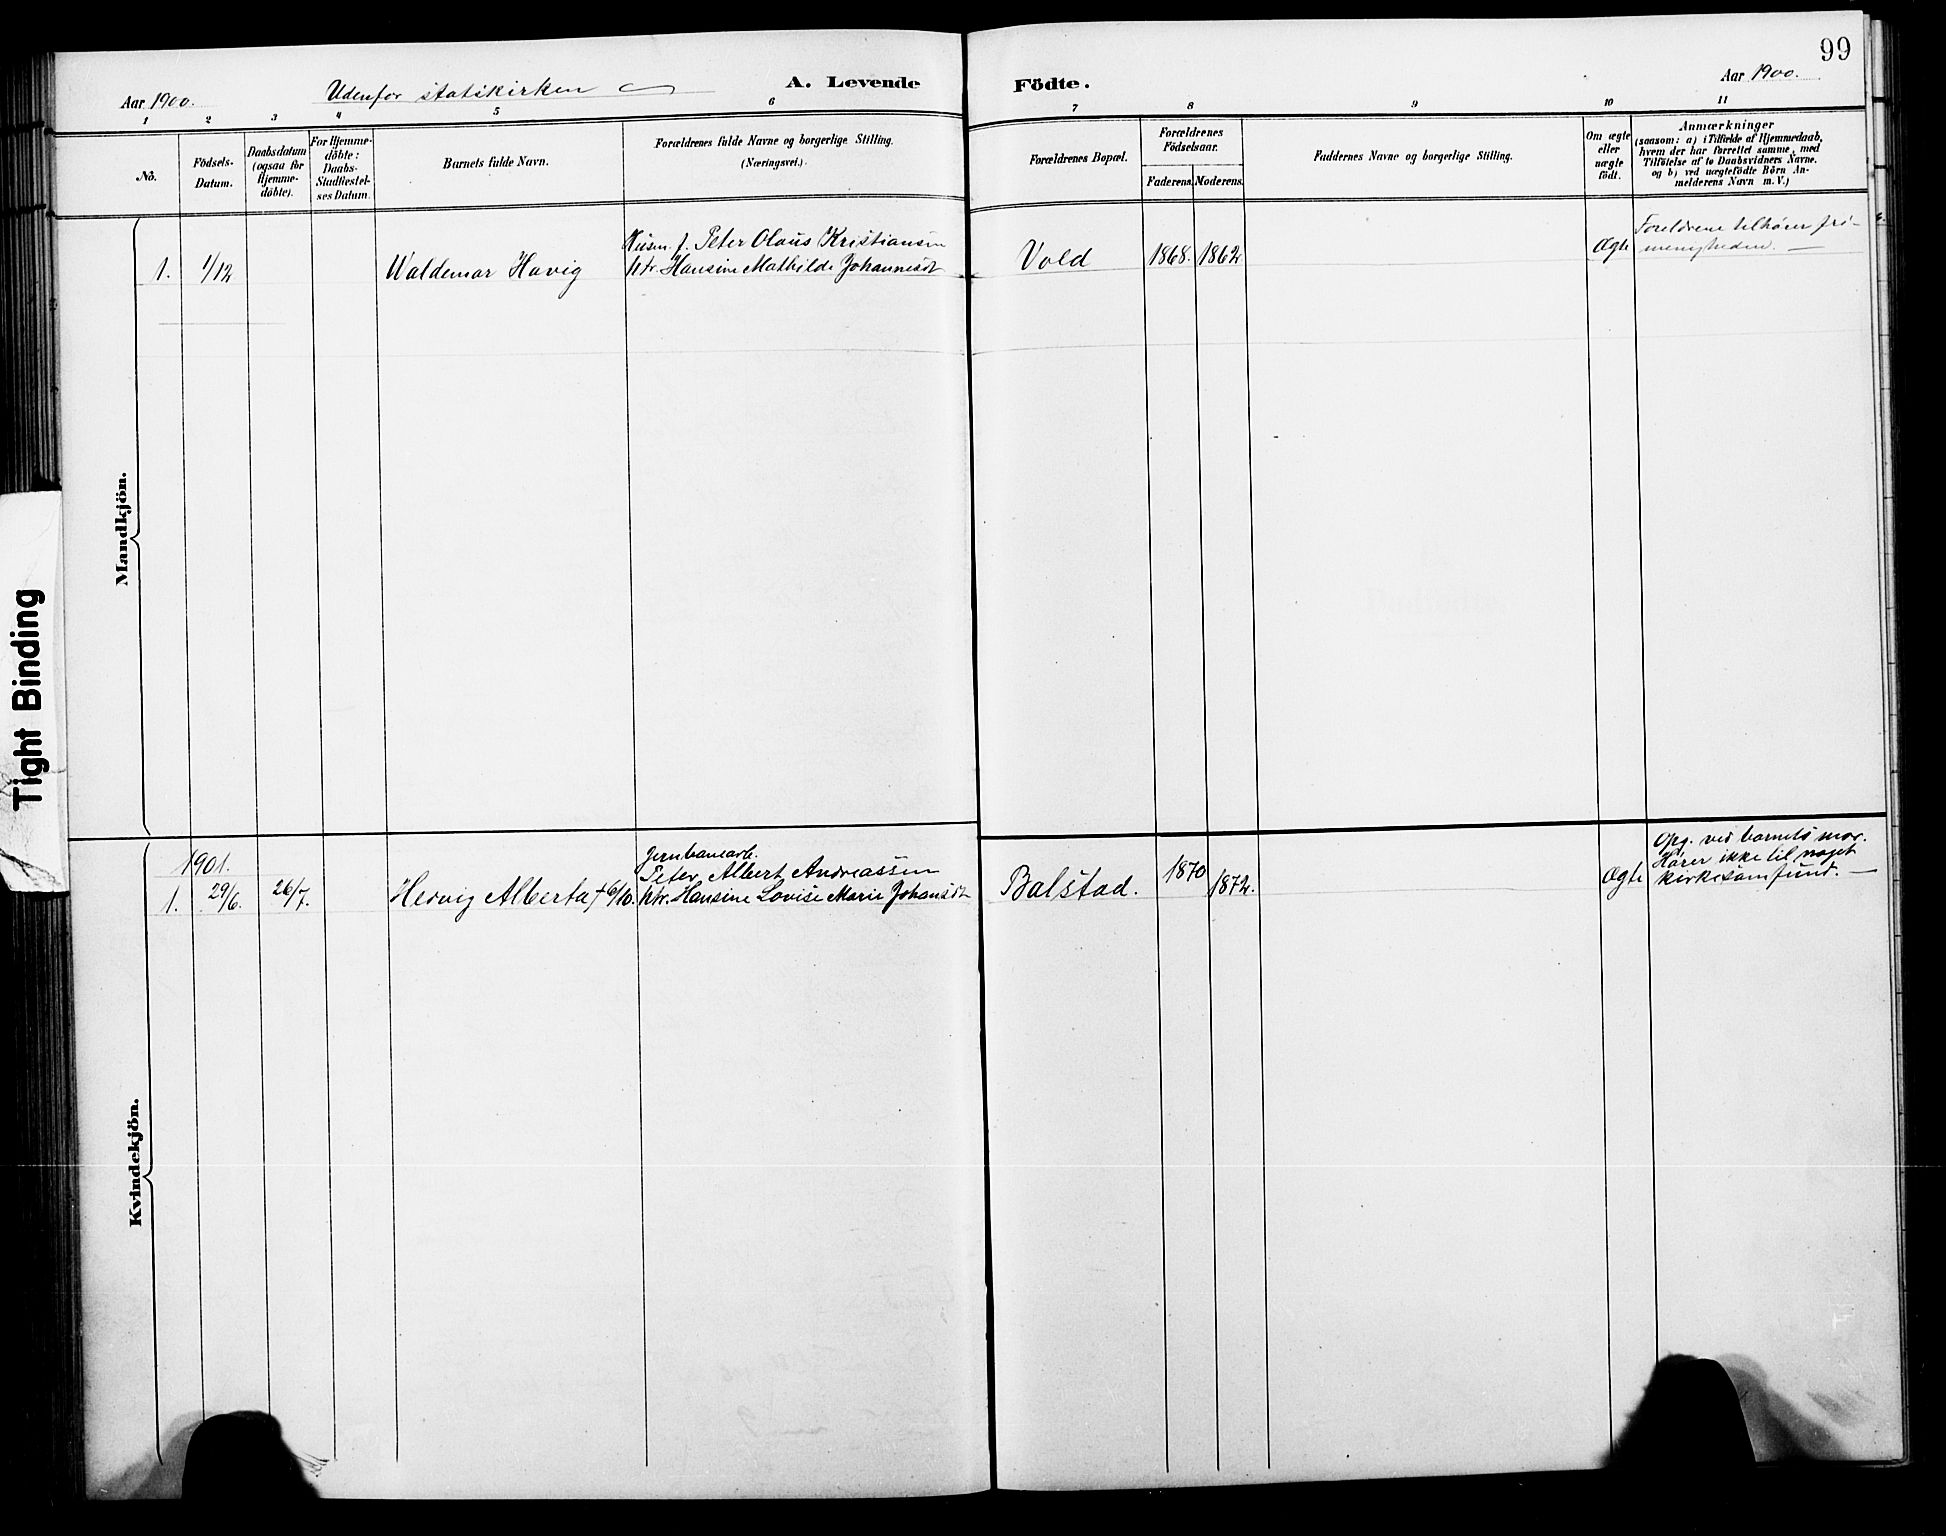 99
Aar 1900. Udenfor statskirken A. Levende Födte. Aar 1900.
1 2 3 4 5 6 7 8 9 10 11
No.
Födsels-
Datum.
Daabsdatum
(ogsaa for
Hjemme-
döbte).
For Hjemme-
döbte:
Daabs-
Stadfæstel-
ses Datum.
Barnets fulde Navn.
Forældrenes fulde Navne og borgerlige Stilling.
(Næringsvei.)
Forældrenes Bopæl.
Forældrenes
Födselsaar.
Faderens. Moderens.
Faddernes Navne og borgerlige Stilling.
Om ægte
eller
uægte
födt.
Anmærkninger
(saasom: a) i Tilfælde af Hjemmedaab,
hvem der har forrettet samme, med
Tilföielse af to Daabsvidners Navne,
og b) ved uægtefödte Börn An-
melderens Navn m. V.)
Mandkjön.
Husm. f. Peter Olaus Kristiansen
1. 1/12 Waldemar Havig htr. Hansine Mathilde Johannesdt Vold 1868. 1862 Ægte
Foreldrene tilhører fri-
menigheden. —
Kvindekjön.
1901.
Jernbanearb.
Peter Albert Andreassen
1. 29/6. 26/7. Hervig Alberta † 6/10. htr. Hansine Lovise Marie Johansdt Balstad. 1870 1872. Ægte
Opg. ved barnets mor.
Hører ikke til noget
kirkesamfund. —
Tight Binding